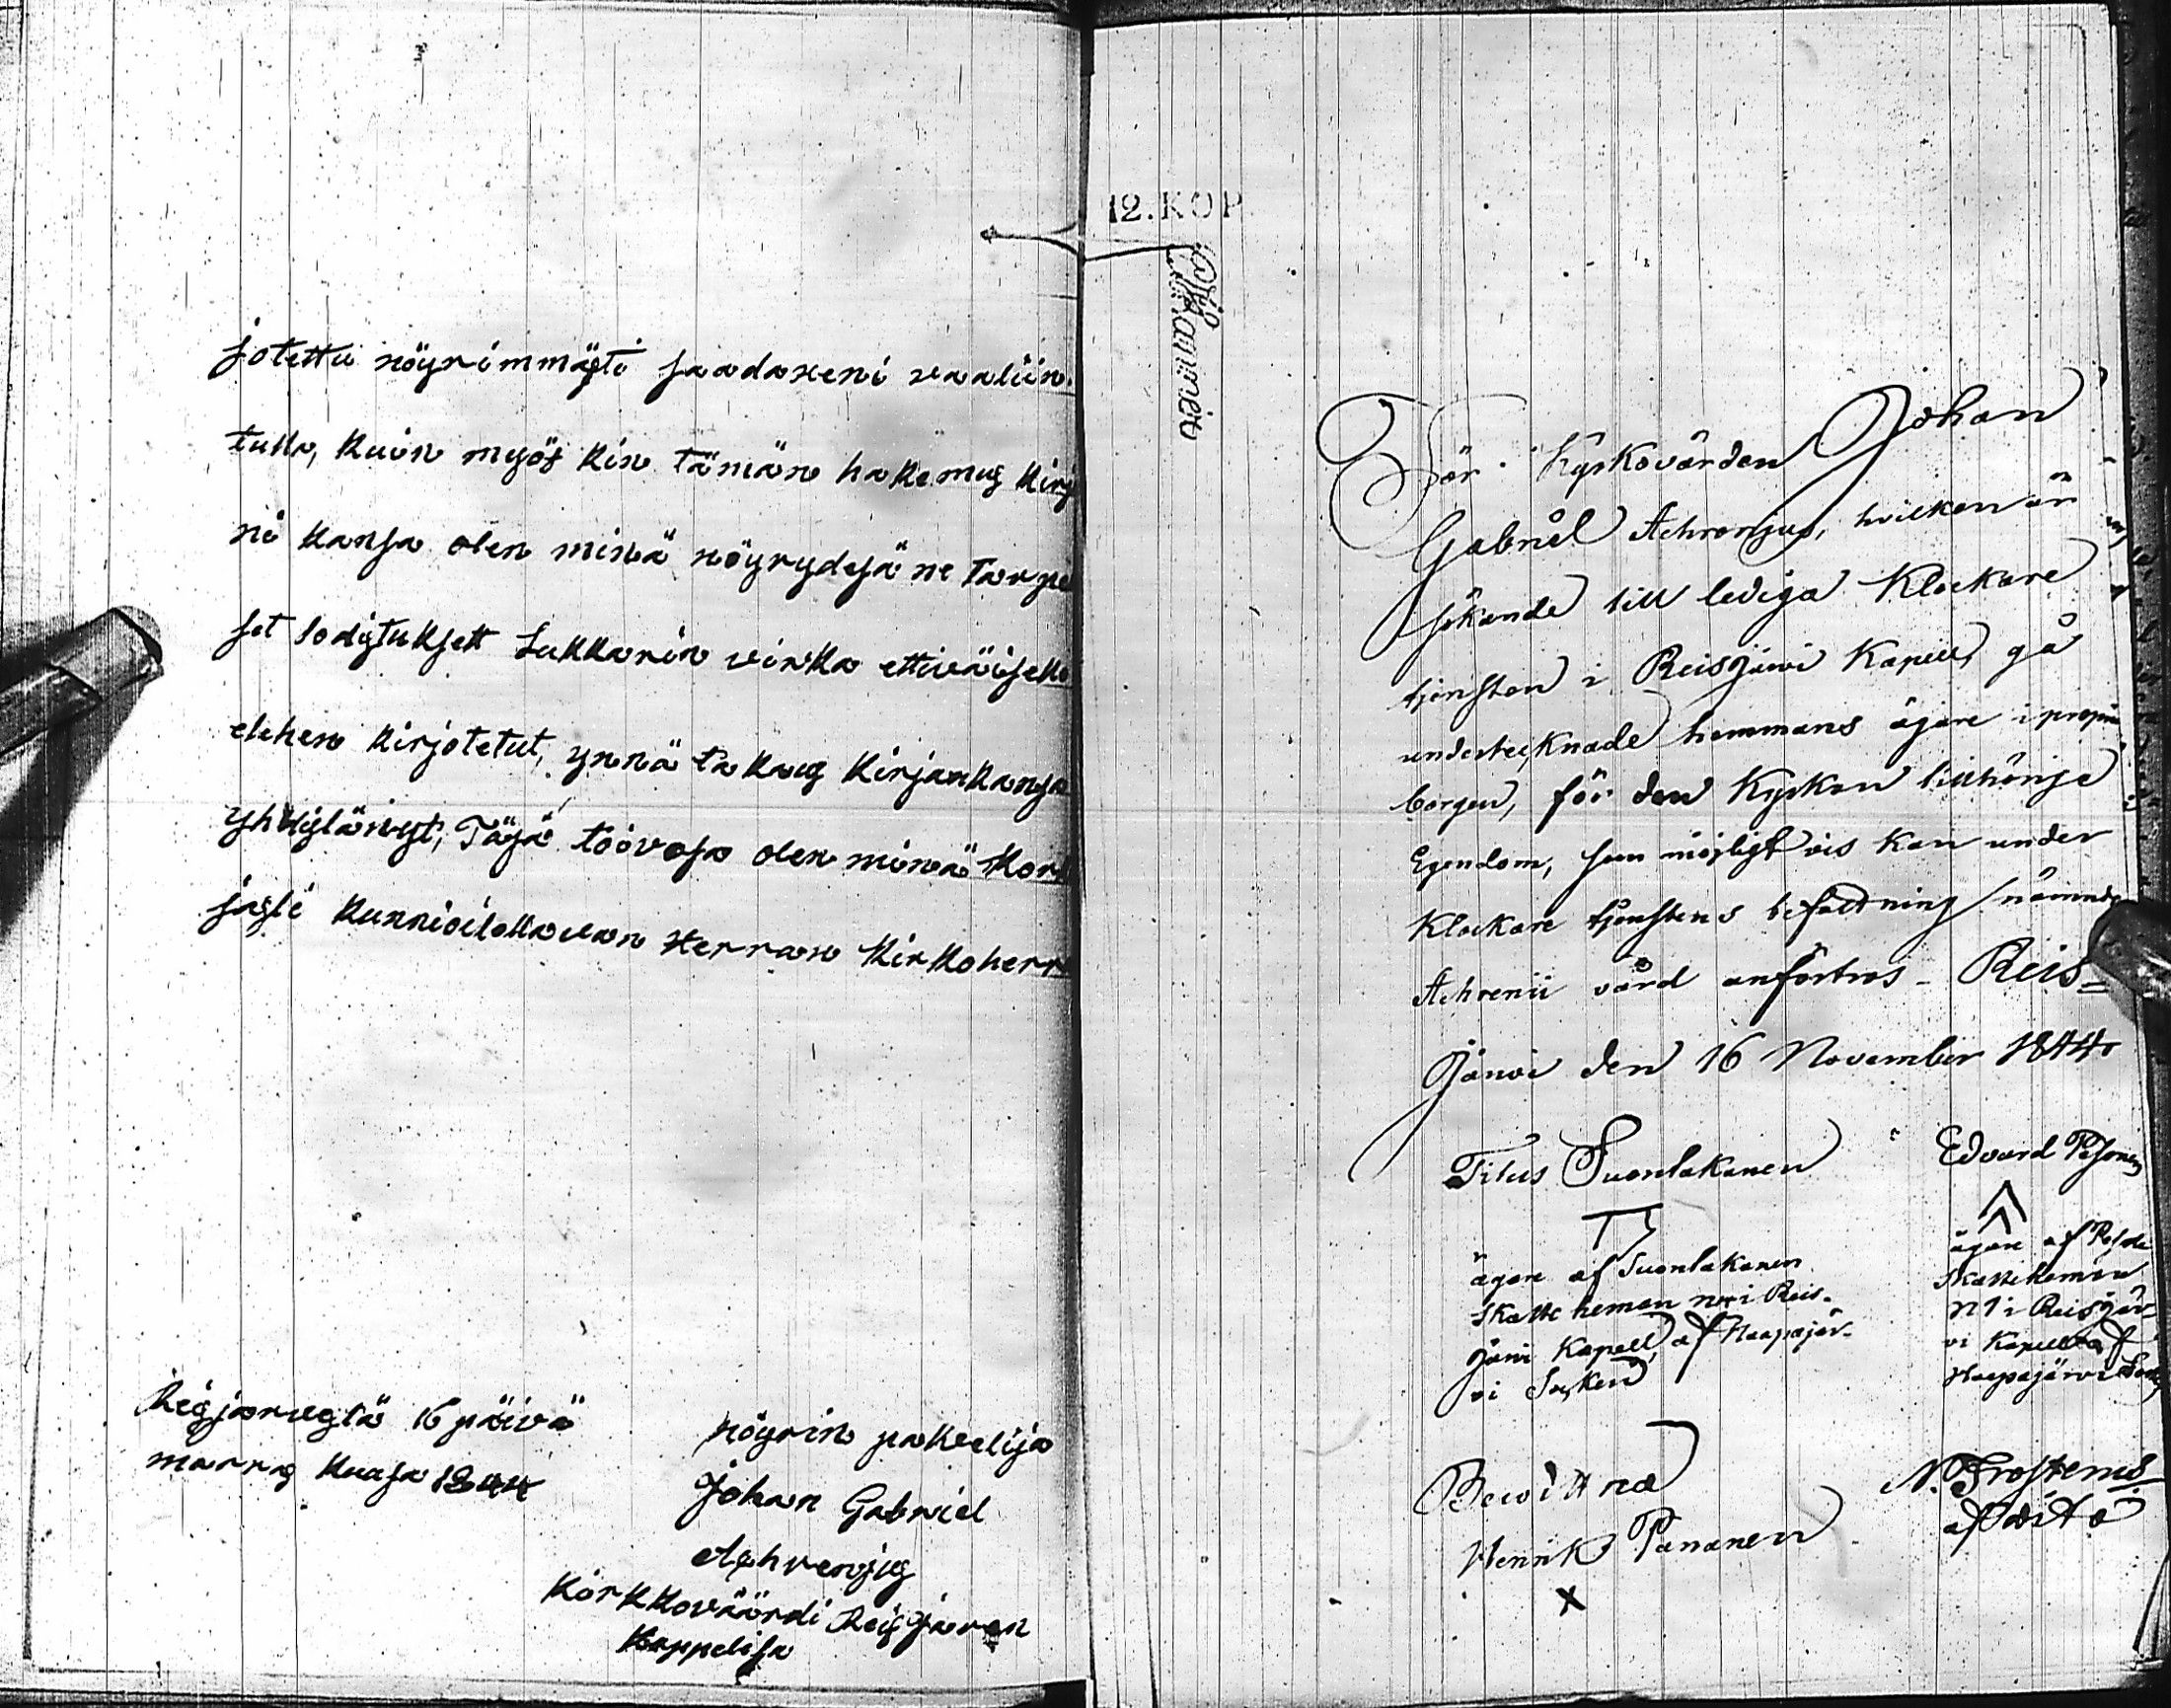 jotettu nöyrimmästi saadaxeni vaaliin
tulla, kuin myös kin tämän hakemus kirj
ni kansa olen minä nöyrydesä ne tarpe
set todistuksett Lukkarin virka
elehen kirjotetut, ynnä takaus kirjan kansa
yhdistänyt, Täsä toivosa olen minä kor
jasti kunnioitettavan Herran kirkoherr
Reisjarvestä 16 päivä
marras kuusa 1844
nöyrin pakvelija
Johan Gabriel
Achrenius
Körkkoväärdi Reisjärven
kappelisa
12. KOP
För Kyrkovärden Johan
Gabriel Achrenius, hvilken är
sökande till lediga Klockare
tjensten i Reisjärvi Kapell, gå
undertecknade hemmans ägare i proprie
borgen, för den Kyrkan tillhörige
Egendom, som möjligtvis kan under
Klockare tjenstens befattning nämnde
Achrenii vård anförtros - Reis=
järvi den 16 November 1844
Titus Suonlakanen
ägare af Suonlakanen
skatte heman i Reis-
järvi Kapell af Haapajär-
vi Socken
Edvard
ägare af
skattehemman
N 1 i Reisjär-
vi Kapell af
Haapajärvi Sock
Bewittna
Henrik Pananen
X
N. Frosterus
af dito